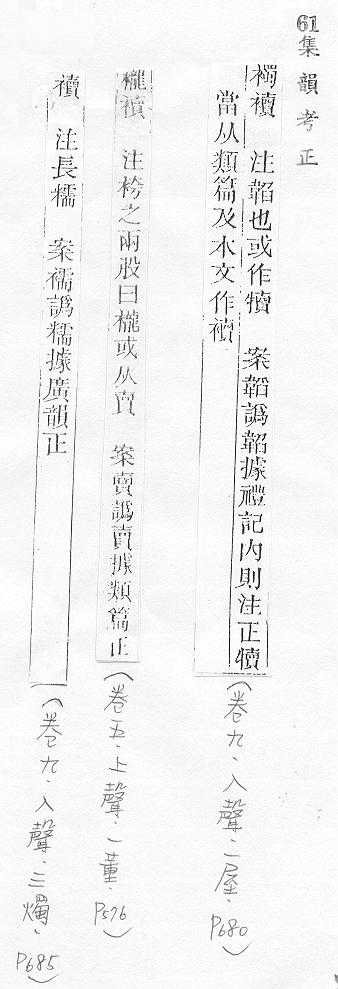 61 集韻考正
襡襩 注韜也或作犢 案韜譌韜據禮記內則注正犢
當从類篇及本文作襩
(卷九.入聲.一屋.P680)
襱襩 注袴之兩股曰襱或从賣 案賣譌賣據類篇正
(卷五.上聲.一董.P576)
襩 注長襦 案襦譌襦據廣韻正
(卷九.入聲.三燭.P685)